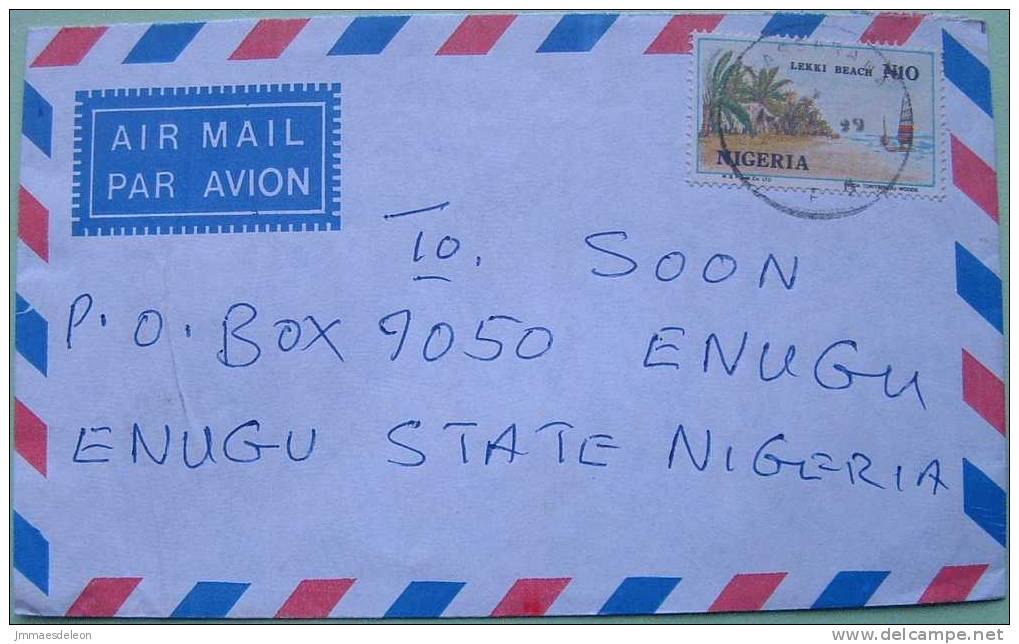 AIR MAIL
PAR AVION
LEKKI BEACH N10
99
NIGERIA
To. SOON
P.O. BOX 9050 ENUGU
ENUGU STATE NIGERIA
Jmmaesdeleon
www.delcampe.net